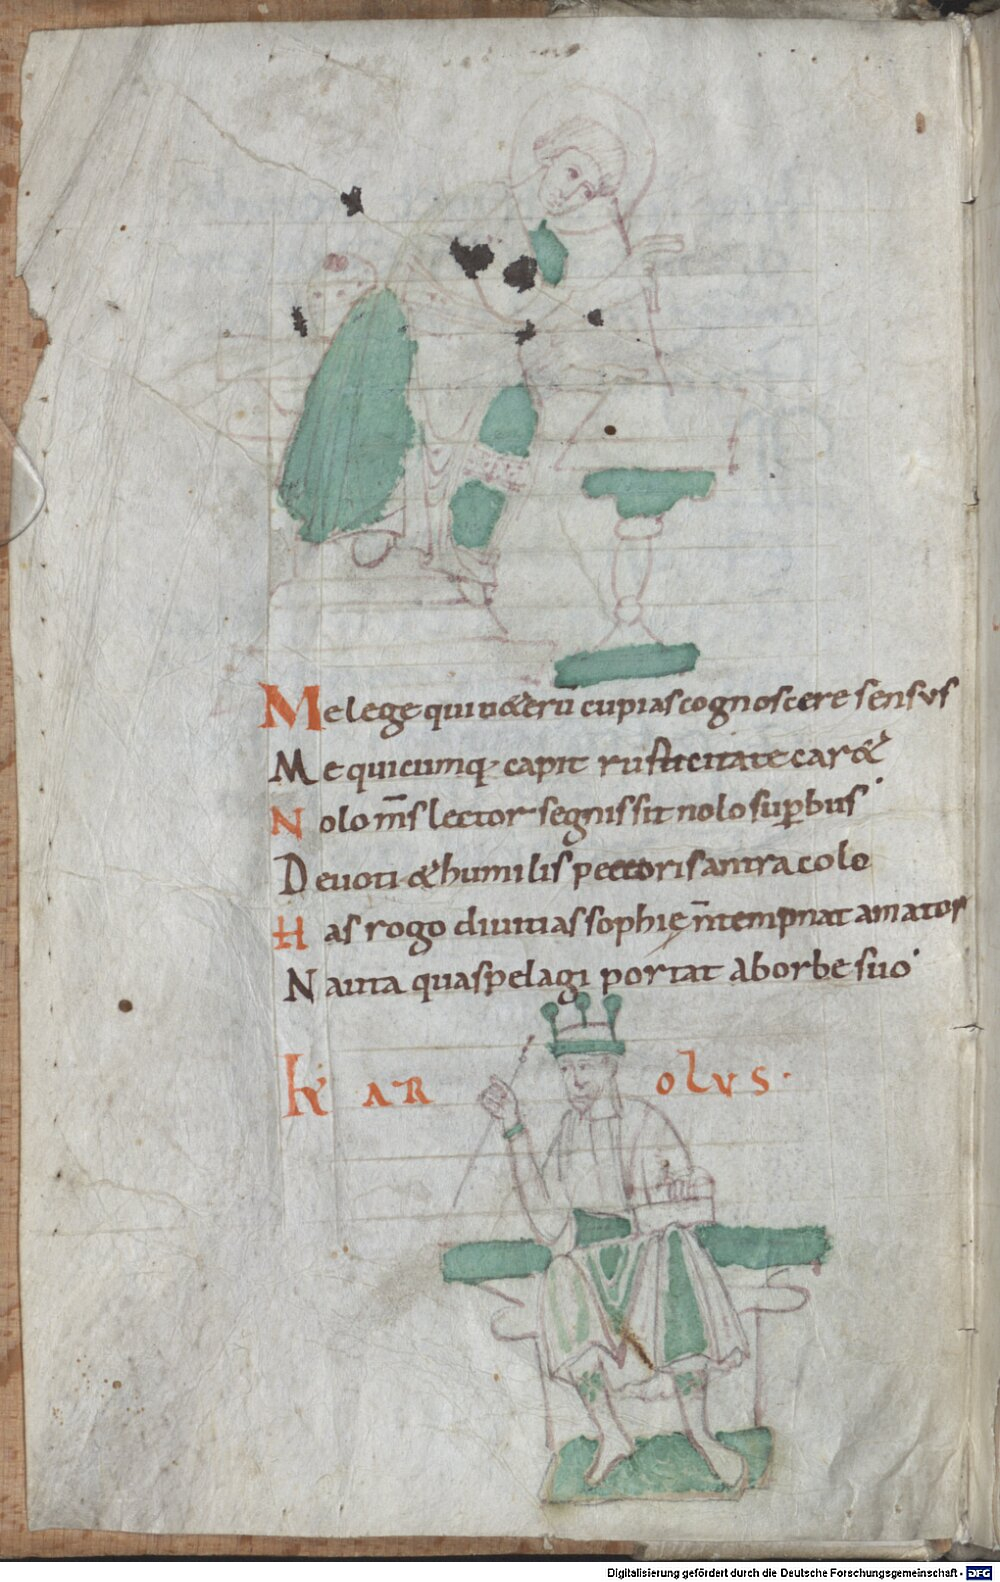 Me lege qui u&erū cupias cognoscere sensvs
Me quicumq· capit rusticitate car&
Nolo m̄s lector segnis sit nolo sup̱bus
Deuoti & humilis pectoris antra colo
Has rogo diuitias sophię n̄ tempnat amator
Nauta quas pelagi portat ab orbe suo
KAROLVS·
Digitalisierung gefördert durch die Deutsche Forschungsgemeinschaft - DFG